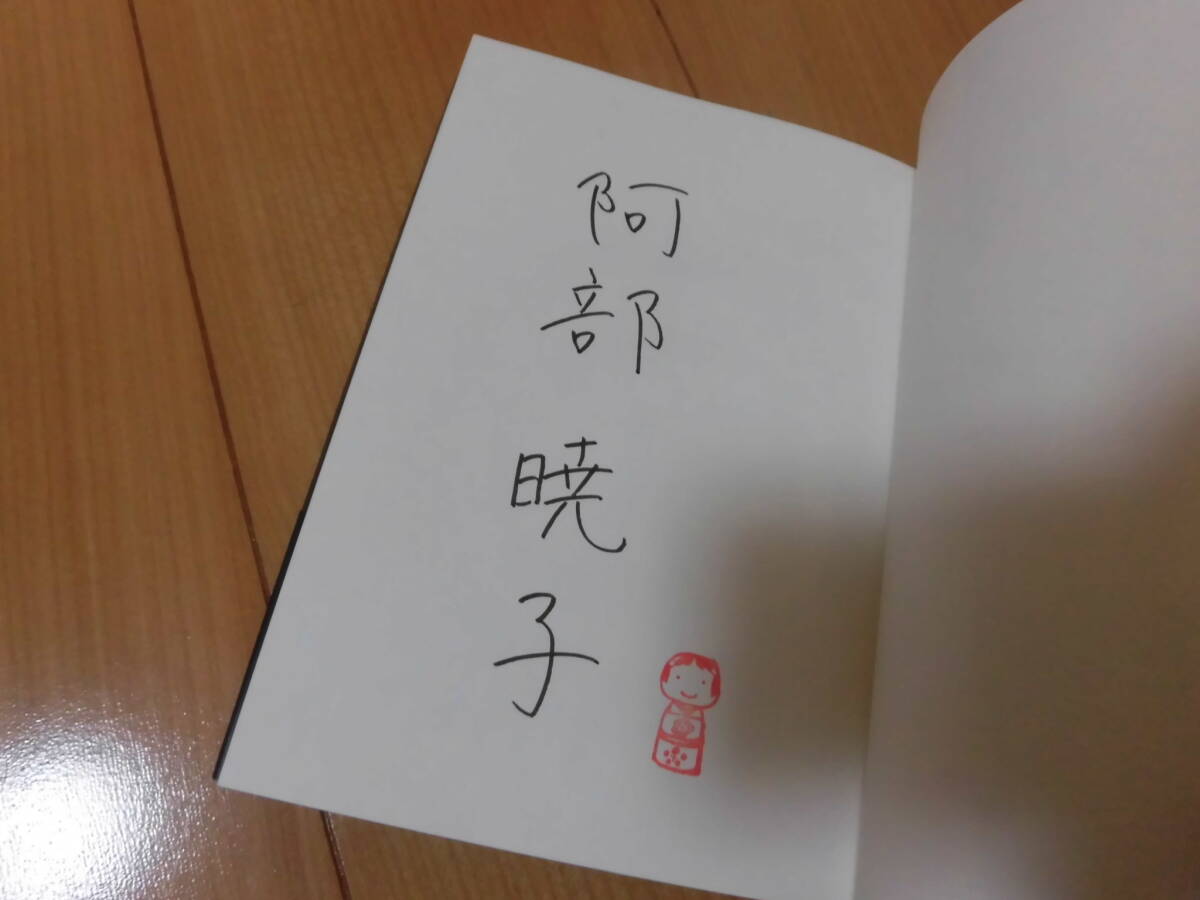 阿部暁子